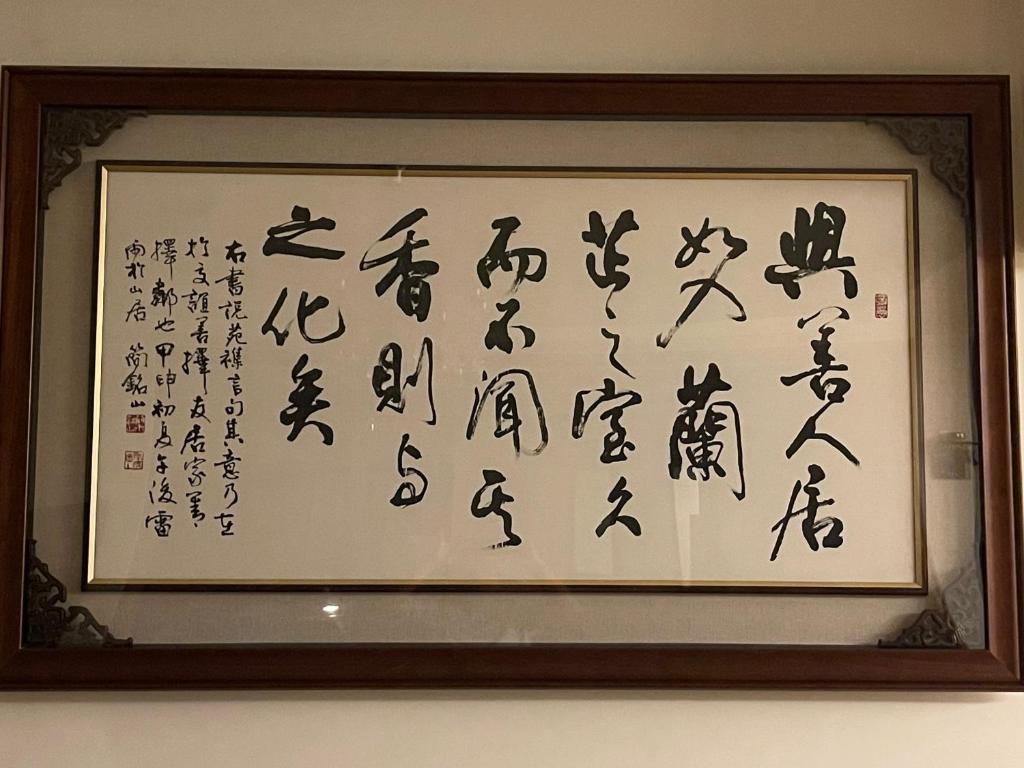 與善人居
如入蘭
芷之室久
而不聞其
香則与
之化矣
右書說苑襍言句其意乃在
於交誼善擇友居家善
擇鄰也甲申初夏午後雷
雨於山居 簡銘山